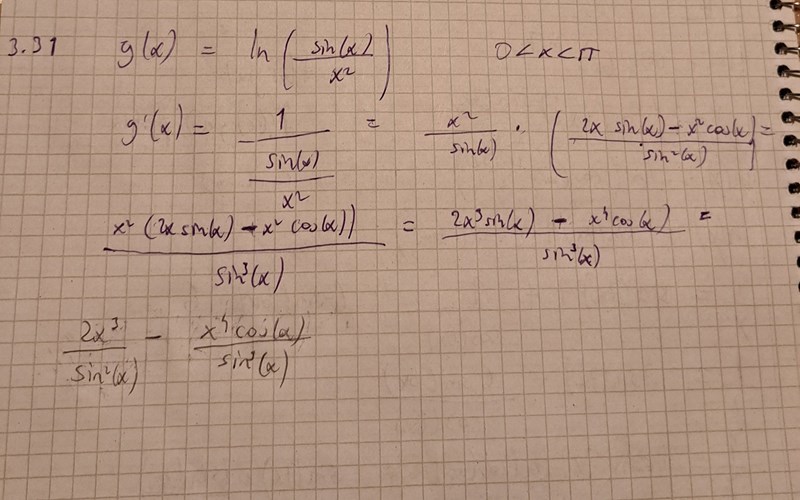 3.31 g(x) = ln(sin(x)/x²) 0<x<π
g'(x) = 1/(sin(x)/x²) = x²/sin(x) · (2x sin(x) - x² cos(x)/sin²(x)) =
x² (2x sin(x) - x² cos(x))/sin³(x) = 2x³ sin(x) - x⁴ cos(x)/sin³(x) =
2x³/sin²(x) - x⁴ cos(x)/sin³(x)